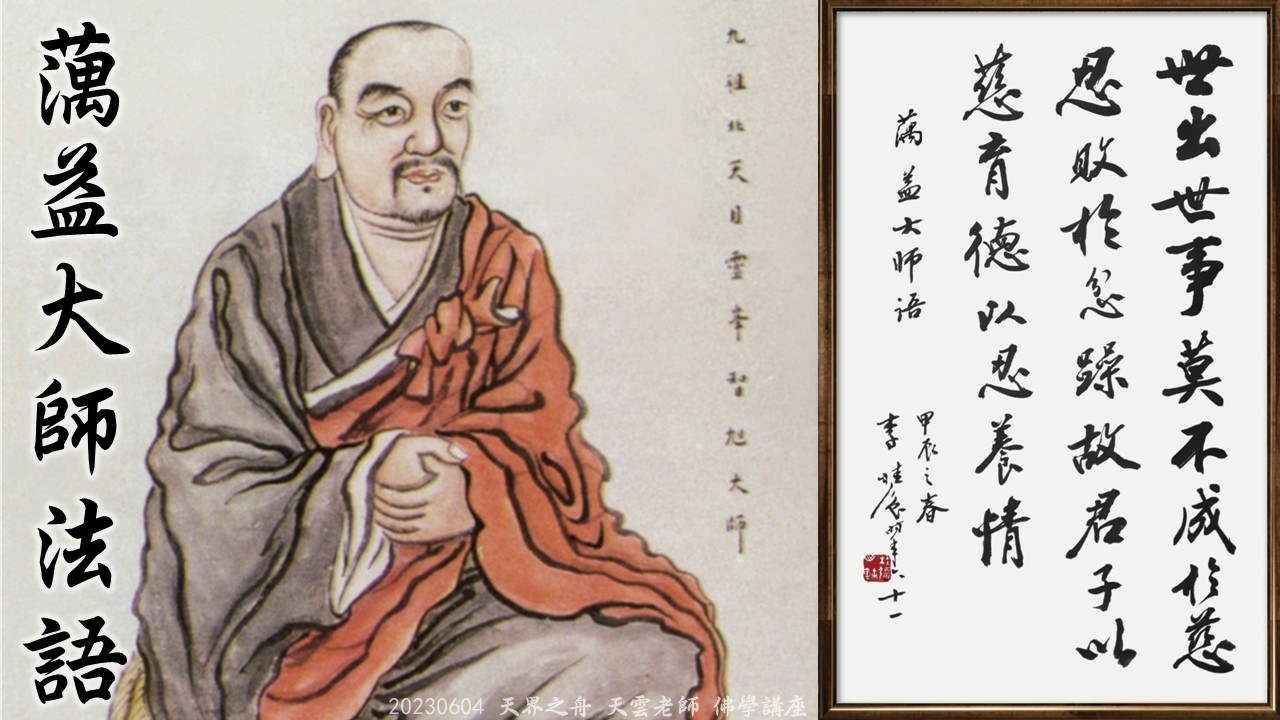 蕅益大師法語
九祖北天目靈峯智旭大師
世出世事莫不成於慈
忍敗於忿躁故君子以
慈育德以忍養情
蕅益大师语
甲辰之春
李
六十一
20230604 天界之舟 天雲老師 佛學講座